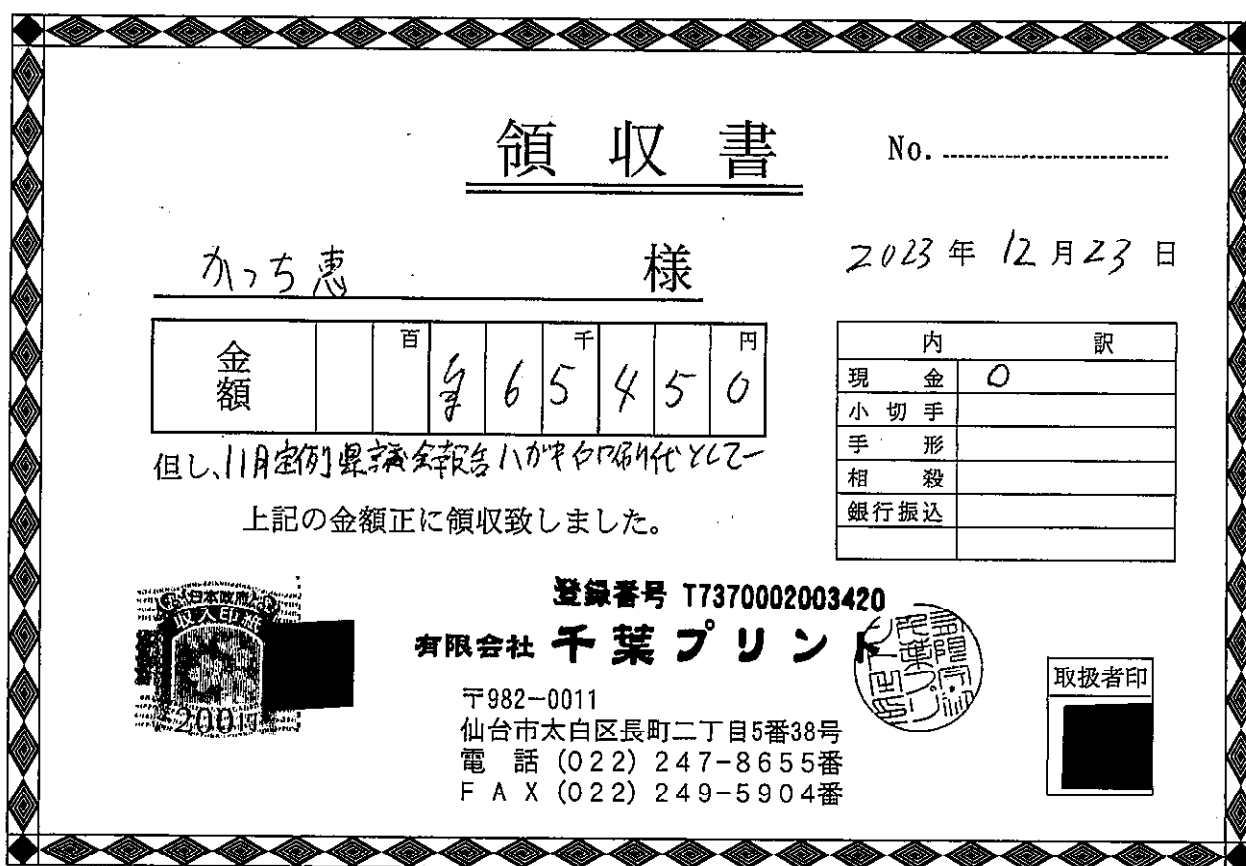 領収書
No.
かっち恵 様
2023年12月23日
金額 百 千 円
¥65450
但し、11月定例県議会報告ハガキ印刷代として
上記の金額正に領収致しました。
内訳
現金 0
小切手
手形
相殺
銀行振込
日本政府
収入印紙
200円
登録番号 T7370002003420
有限会社 千葉プリント
〒982-0011
仙台市太白区長町二丁目5番38号
電話 (022) 247-8655番
FAX (022) 249-5904番
取扱者印